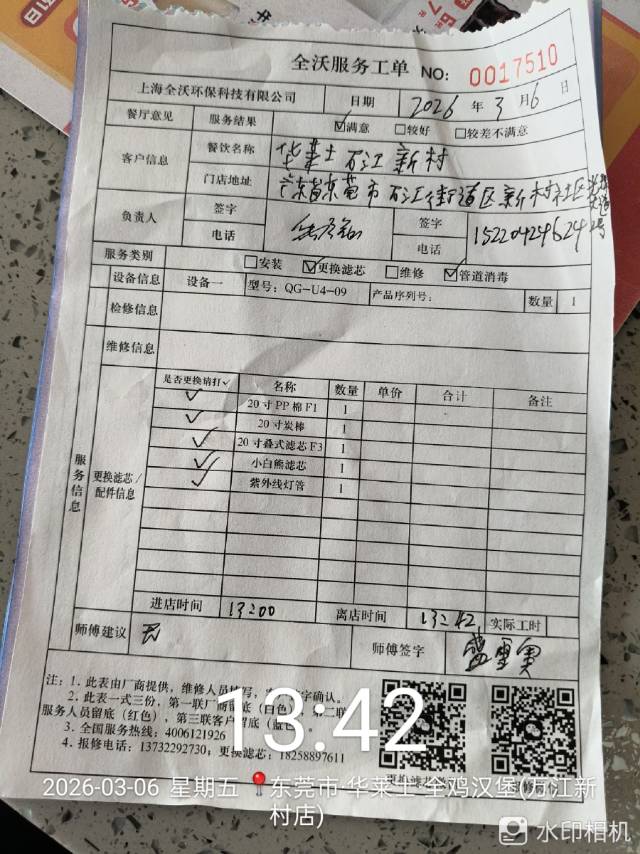 全沃服务工单 NO: 0017510
上海全沃环保科技有限公司 日期 2026年3月6日
餐厅意见 服务结果 ☑满意 ☐较好 ☐较差不满意
客户信息 餐饮名称 华莱士万江新村
门店地址 广东省东莞市万江街道区新村社区
负责人 签字 签字
电话 电话 15220424624
服务类别 ☐安装 ☑更换滤芯 ☐维修 ☑管道消毒
设备信息 设备一 型号: QG-U4-09 产品序列号: 数量 1
检修信息
维修信息
服务信息
更换滤芯/配件信息
是否更换请打✓ 名称 数量 单价 合计 备注
✓ 20寸PP棉F1 1
✓ 20寸炭棒 1
✓ 20寸叠式滤芯F3 1
✓ 小白熊滤芯 1
✓ 紫外线灯管 1
进店时间 13:00 离店时间 13:42 实际工时
师傅建议 无 师傅签字
注: 1. 此表由厂商提供, 维修人员填写, 字确认。
2. 此表一式三份, 第一联厂商留底(白色), 第二联
服务人员留底(红色), 第三联客户留底(蓝色)。
3. 全国服务热线: 4006121926
4. 报修电话: 13732292730, 更换滤芯: 18258897611
13:42
2026-03-06 星期五 东莞市·华莱士·全鸡汉堡(万江新
村店)
水印相机